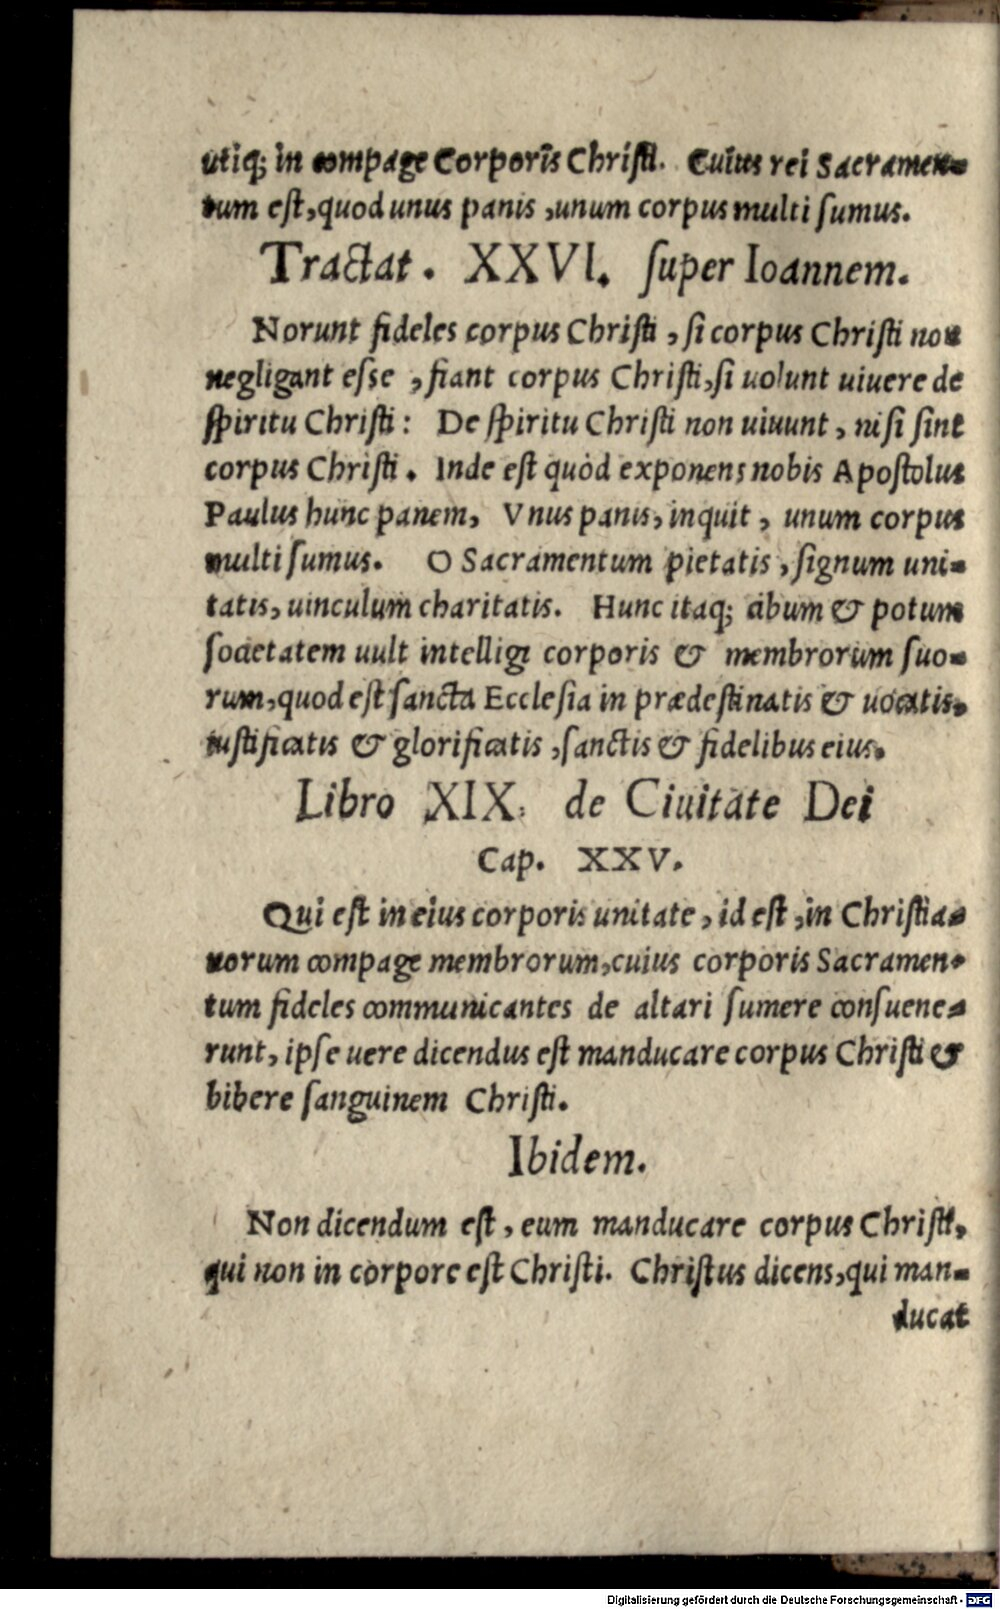 utiq; in compage Corporis Christi. Cuius rei Sacramen-
tum est, quod unus panis, unum corpus multi sumus.
Tractat. XXVI. super Ioannem.
Norunt fideles corpus Christi, si corpus Christi non
negligant esse, fiant corpus Christi, si uolunt uiuere de
spiritu Christi: De spiritu Christi non uiuunt, nisi sint
corpus Christi. Inde est quòd exponens nobis Apostolus
Paulus hunc panem, Vnus panis, inquit, unum corpus
multi sumus. O Sacramentum pietatis, signum uni-
tatis, uinculum charitatis. Hunc itaq; cibum & potum
societatem uult intelligi corporis & membrorum suo-
rum, quod est sancta Ecclesia in prædestinatis & uocatis,
iustificatis & glorificatis, sanctis & fidelibus eius.
Libro XIX. de Ciuitate Dei
Cap. XXV.
Qui est in eius corporis unitate, id est, in Christia-
norum compage membrorum, cuius corporis Sacramen-
tum fideles communicantes de altari sumere consueue-
runt, ipse uere dicendus est manducare corpus Christi &
bibere sanguinem Christi.
Ibidem.
Non dicendum est, eum manducare corpus Christi,
qui non in corpore est Christi. Christus dicens, qui man-
ducat
Digitalisierung gefördert durch die Deutsche Forschungsgemeinschaft - DFG